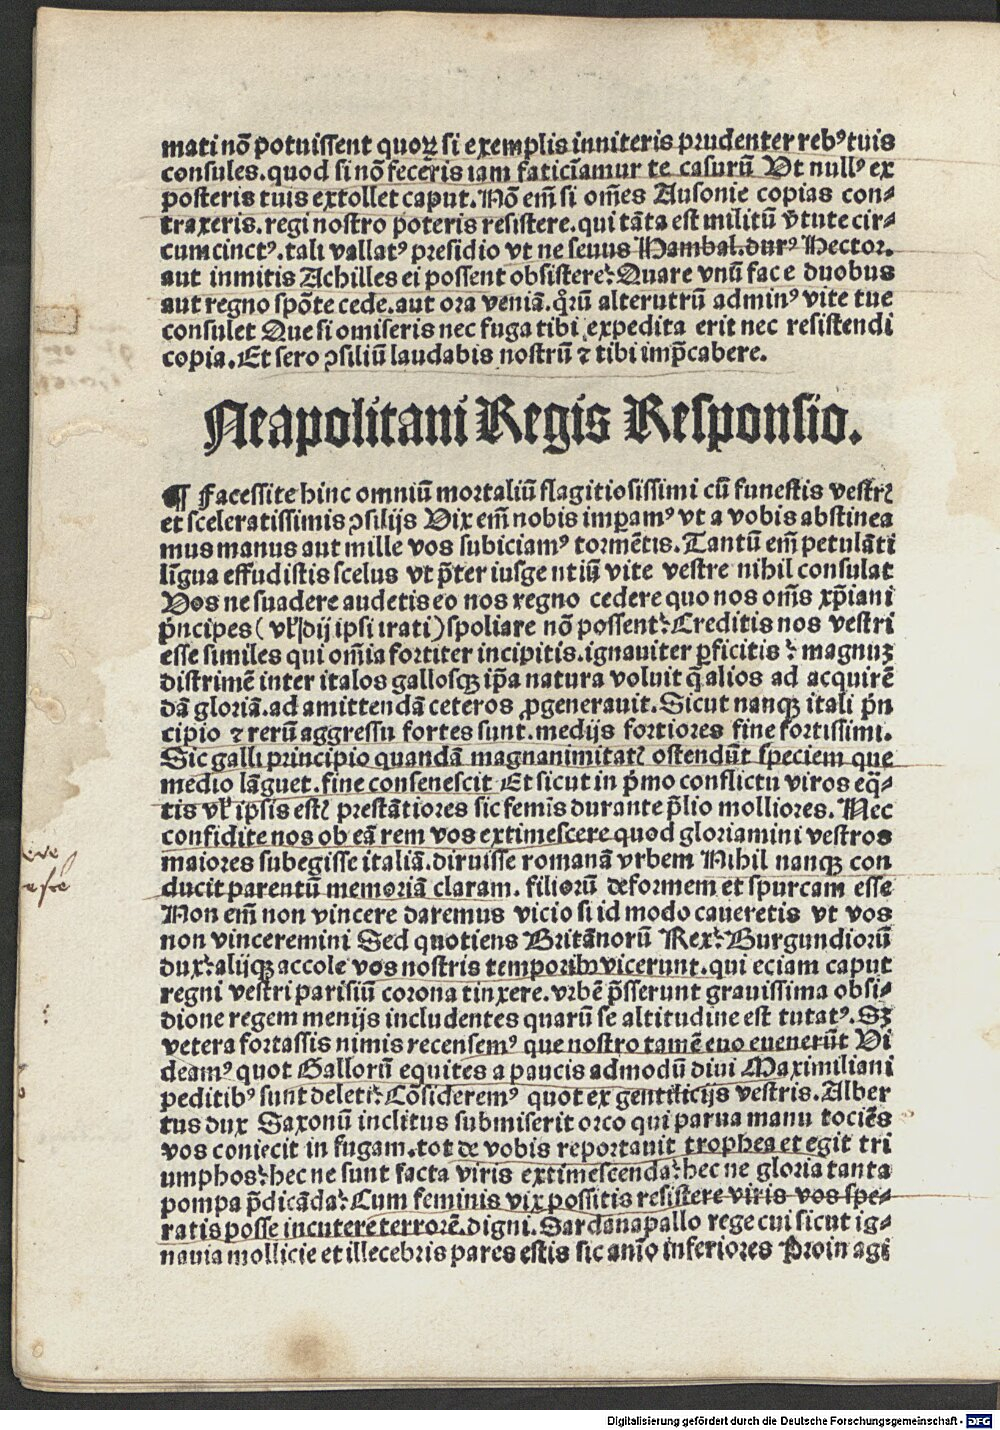 mati nō potuissent quoꝝ si exemplis inniteris prudenter rebꝰ tuis
consules. quod si nō feceris iam faticīamur te casurū Ut nullꝰ ex
posteris tuis extollet caput. Nō em̄ si om̄es Ausonie copias con⸗
traxeris. regi nostro poteris resistere. qui tāta est militū v̄tute cir⸗
cumcinctꝰ. tali vallatꝰ presidio vt ne seuus Hambal. durꝰ Hector.
aut inmitis Achilles ei possent obsistere? Quare vnū fac e duobus
aut regno spōte cede. aut ora veniā. qͦrū alterutrū adminꝰ vite tue
consulet Que si omiseris nec fuga tibi expedita erit nec resistendi
copia. Et sero ꝯsiliū laudabis nostrū ⁊ tibi imp̄cabere.
Neapolitani Regis Responsio.
¶ Facessite hinc omniū mortaliū flagitiosissimi cū funestis vestrꝭ
et sceleratissimis ꝯsilijs Vix em̄ nobis imꝑamꝰ vt a vobis abstinea
mus manus aut mille vos subiciamꝰ tormētis. Tantū em̄ petulāti
līgua effudistis scelus vt p̄ter ius gentiū vite vestre nihil consulat
Vos ne suadere audetis eo nos regno cedere quo nos om̄s xp̄iani
p̄ncipes (vꝉ dij ipsi irati) spoliare nō possent? Creditis nos vestri
esse similes qui om̄ia fortiter incipitis. ignauiter ꝑficitis? magnuꝫ
distrimē inter italos gallosqꝫ ip̄a natura voluit q̄ alios ad acquirē
dā gloriā. ad amittendā ceteros ꝓgenerauit. Sicut nanqꝫ itali p̄n
cipio ⁊ rerū aggressu fortes sunt. medijs fortiores fine fortissimi.
Sic galli principio quandā magnanimitatꝭ ostendūt speciem que
medio lāguet. fine consenescit Et sicut in p̄mo conflictu viros eq̄⸗
tis vꝉ ipsis estꝭ prestātiores sic femīs durante p̄lio molliores. Nec
confidite nos ob eā rem vos extimescere quod gloriamini vestros
maiores subegisse italiā. diruisse romanā vrbem Nihil nanqꝫ con
ducit parentū memoriā claram. filiorū deformem et spurcam esse
Non em̄ non vincere daremus vicio si id modo caueretis vt vos
non vinceremini Sed quotiens Britānorū Rex? Burgundiorū
dux? alijqꝫ accole vos nostris temporibꝰ vicerunt. qui eciam caput
regni vestri parisiū corona tinxere. vrbē p̄sserunt grauissima obsi⸗
dione regem menijs includentes quarū se altitudine est tutatꝰ. Sꝫ
vetera fortassis nimis recensemꝰ que nostro tamē euo euenerūt Vi
deamꝰ quot Gallorū equites a paucis admodū diui Maximiliani
peditibꝰ sunt deleti? Cōsideremꝰ quot ex gentilicijs vestris. Alber
tus dux Saxonū inclitus submiserit orco qui parua manu tociēs
vos coniecit in fugam. tot de vobis reportauit trophea et egit tri
umphos? hec ne sunt facta viris extimescenda? hec ne gloria tanta
pompa p̄dicāda? Cum feminis vix possitis resistere viris vos spe⸗
ratis posse incutere terrorē. digni. Sardanapallo rege cui sicut ig⸗
nauia mollicie et illecebris pares estis sic anīo inferiores Proin agi
Digitalisierung gefördert durch die Deutsche Forschungsgemeinschaft - DFG